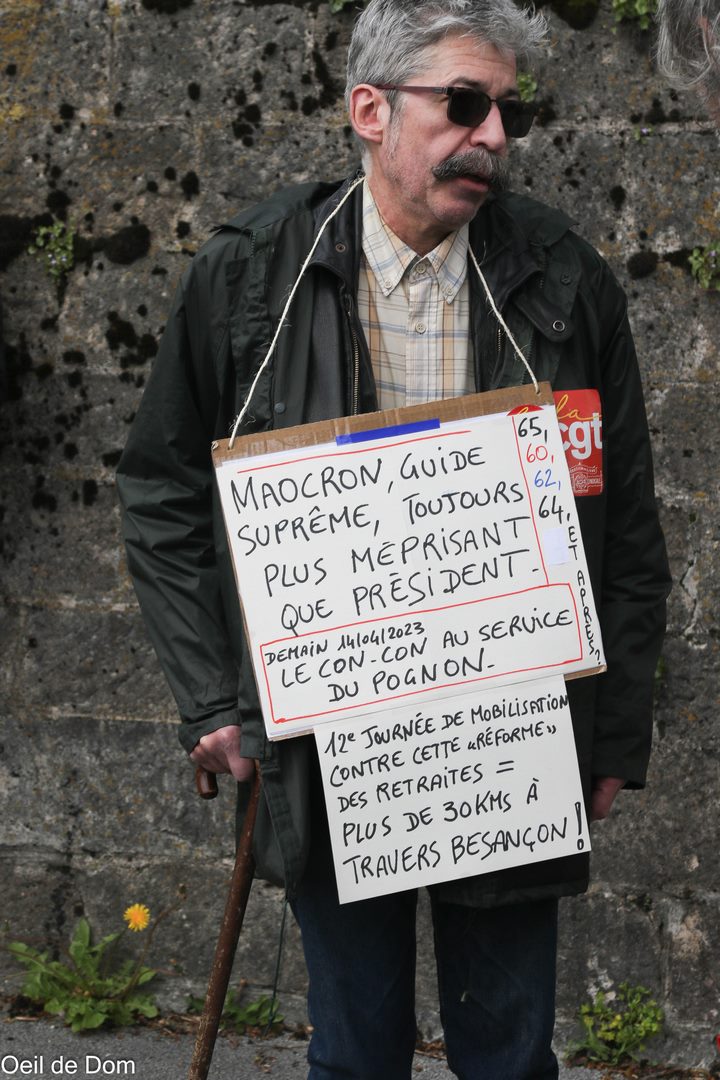 MAOCRON, GUIDE
SUPRÊME, TOUJOURS
PLUS MÉPRISANT
QUE PRÉSIDENT.
65,
60,
62,
64,
ET APRÈS?
DEMAIN 14/04/2023
LE CON-CON AU SERVICE
DU POGNON.
la
cgt
12e JOURNÉE DE MOBILISATION
CONTRE CETTE «RÉFORME»
DES RETRAITES =
PLUS DE 30KMS À
TRAVERS BESANÇON!
Oeil de Dom